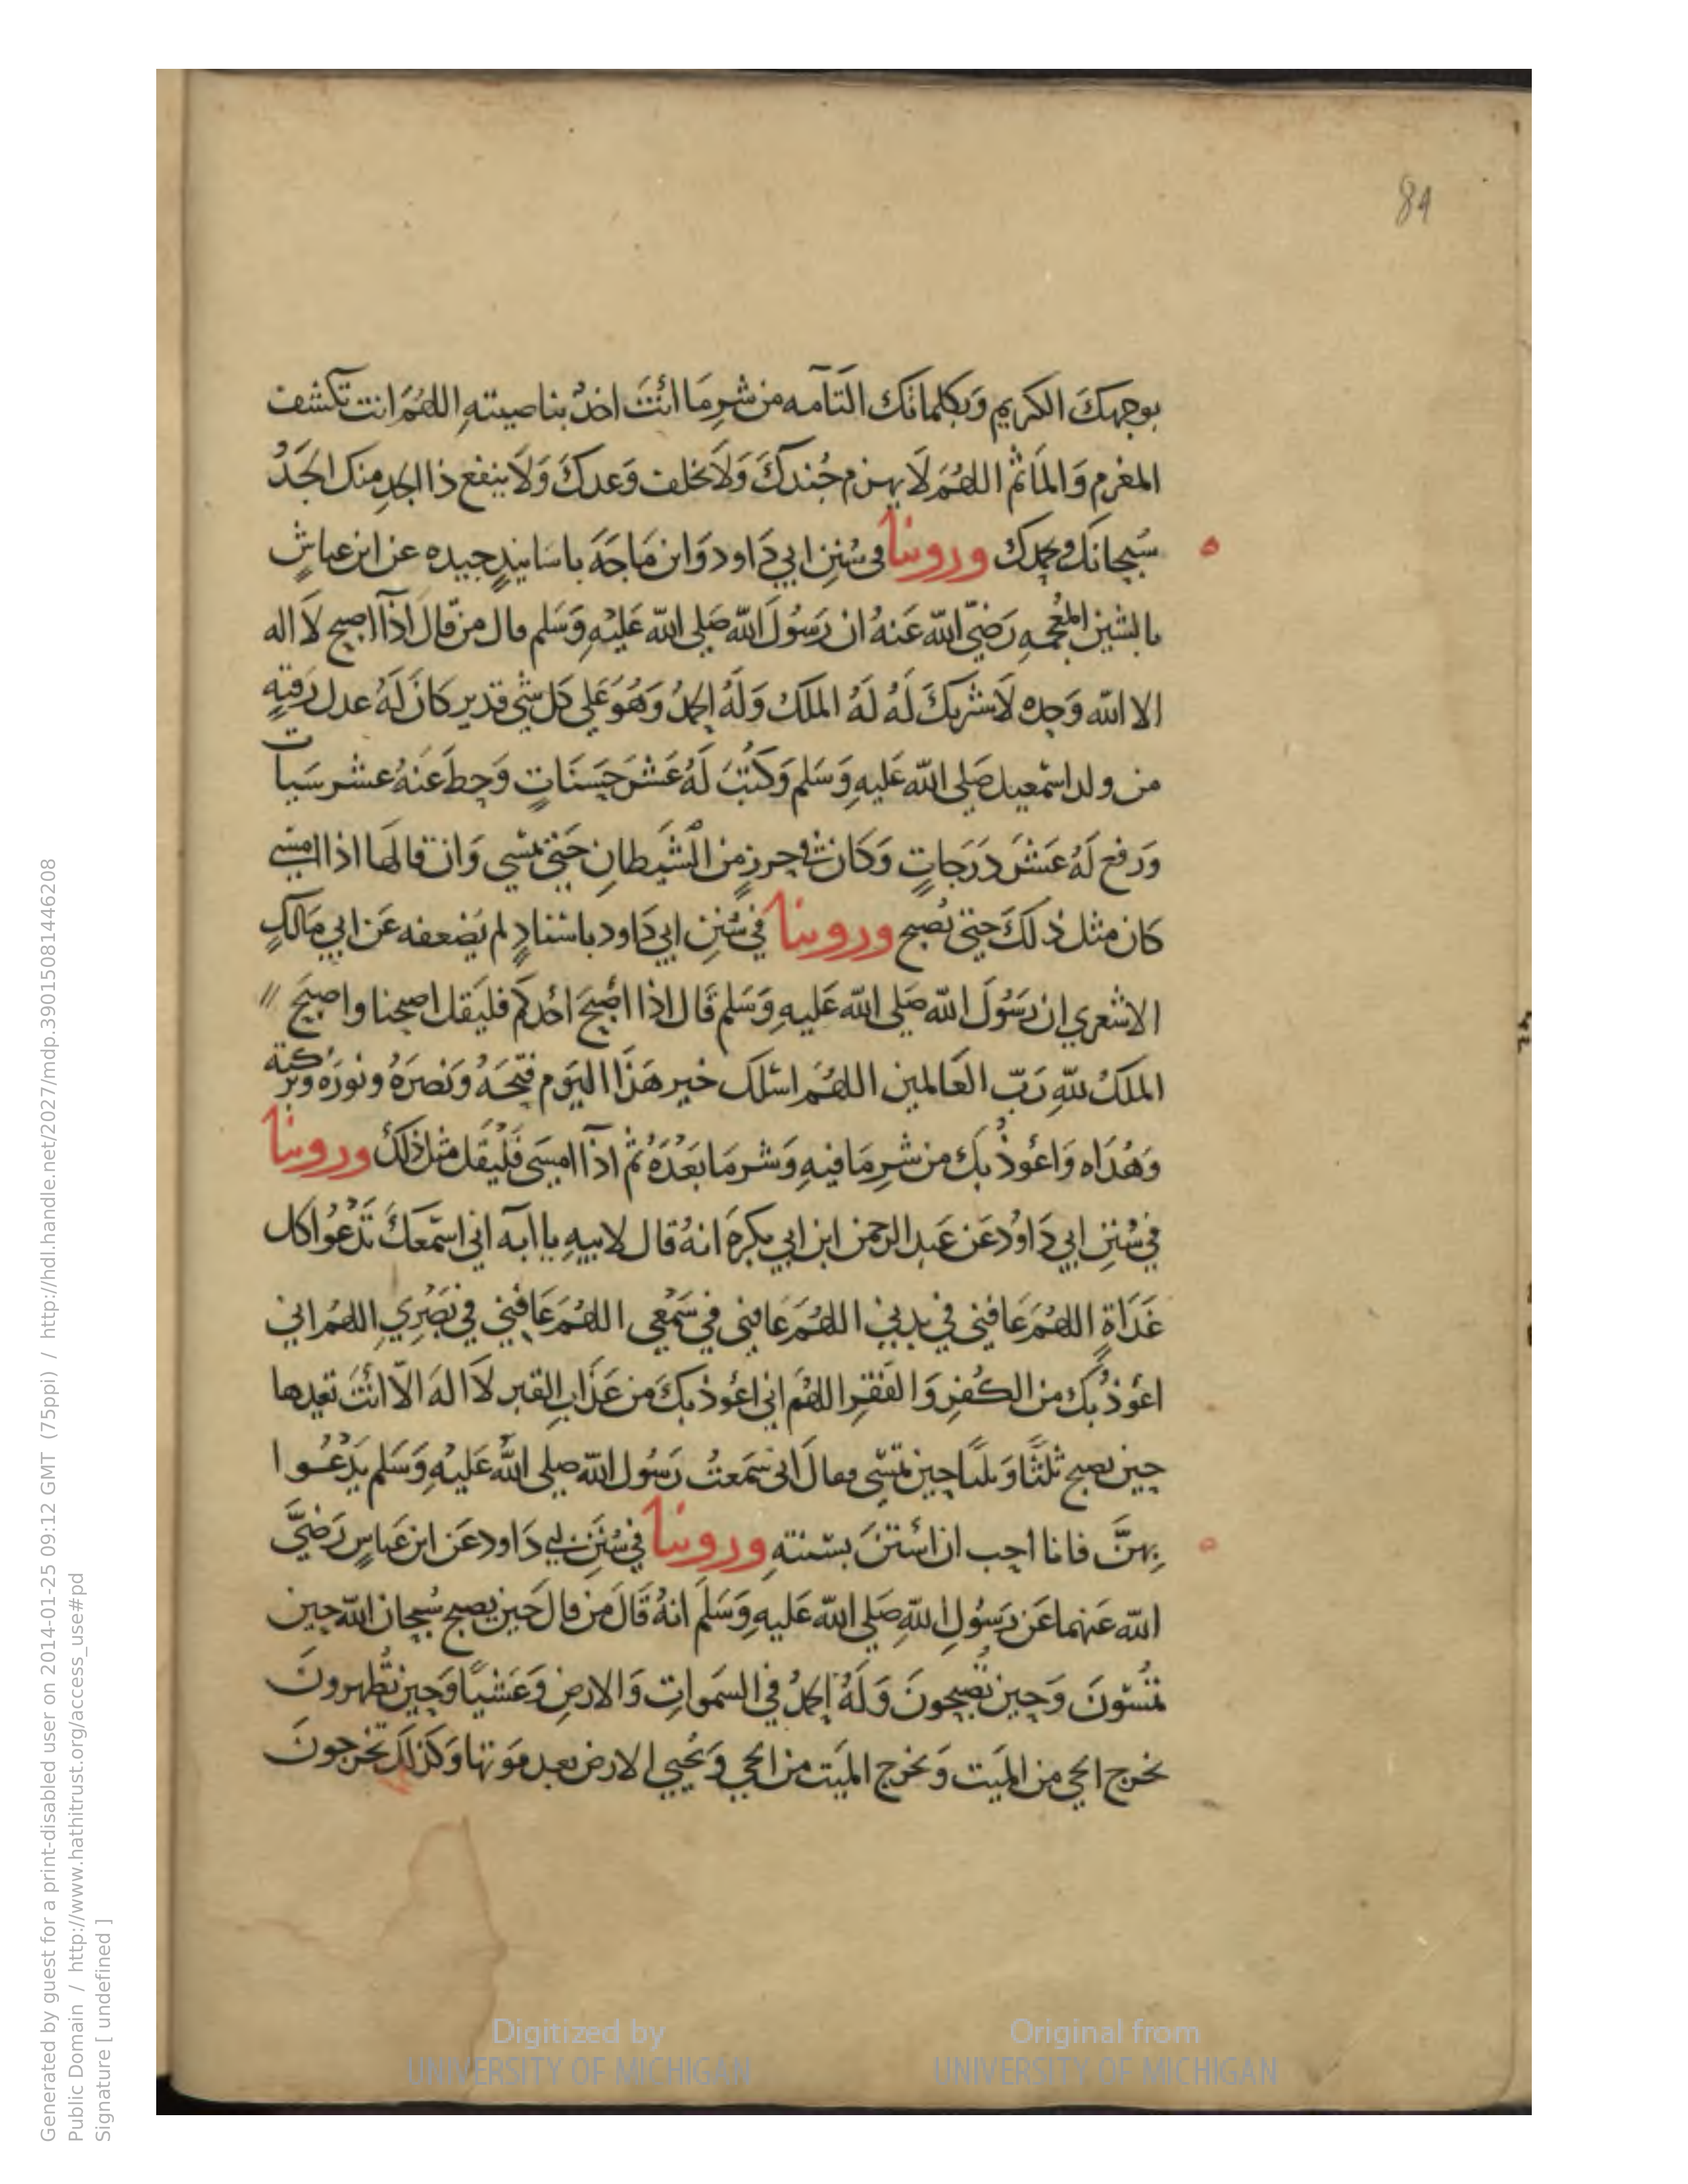 84
بوجهك الكريم وبكلماتك التامه من شر ما انت اخذ بناصيته اللهم انت تكشف
المغرم والماثم اللهم لا يهزم جندك ولا يخلف وعدك ولا ينفع ذا الجد منك الجد
سبحانك وبحمدك وروينا في سنن ابي داود وابن ماجه باسانيد جيده عن ابن عياش
بالشين المعجمه رضي الله عنه ان رسول الله صلى الله عليه وسلم قال من قال اذا اصبح لا اله
الا الله وحده لا شريك له له الملك وله الحمد وهو على كل شي قدير كان له عدل رقبة
من ولد اسمعيل صلى الله عليه وسلم وكتب له عشر حسنات وحط عنه عشر سيات
ورفع له عشر درجات وكان في حرز من الشيطان حتى يمسي وان قالها اذا امسى
كان مثل ذلك حتى يصبح وروينا في سنن ابي داود باسناد لم يضعفه عن ابي مالك
الاشعري ان رسول الله صلى الله عليه وسلم قال اذا اصبح احدكم فليقل اصبحنا واصبح
الملك لله رب العالمين اللهم اسئلك خير هذا اليوم فتحه ونصره ونوره وبركته
وهداه واعوذ بك من شر ما فيه وشر ما بعده ثم اذا امسى فليقل مثل ذلك وروينا
في سنن ابي داود عن عبد الرحمن ابن ابي بكره انه قال لابيه يا ابه اني اسمعك تدعوا كل
غداة اللهم عافني في بدني اللهم عافني في سمعي اللهم عافني في بصري اللهم اني
اعوذ بك من الكفر والفقر اللهم اني اعوذ بك من عذاب القبر لا اله الا انت تعيدها
حين تصبح ثلثا وثلثا حين تمسي فقال اني سمعت رسول الله صلى الله عليه وسلم يدعوا
بهن فانا احب ان استن بسنته وروينا في سنن ابي داود عن ابن عباس رضي
الله عنهما عن رسول الله صلى الله عليه وسلم انه قال من قال حين يصبح سبحان الله حين
تمسون وحين تصبحون وله الحمد في السموات والارض وعشيا وحين تظهرون
يخرج الحي من الميت ويخرج الميت من الحي ويحيي الارض بعد موتها وكذلك تخرجون
Digitized by UNIVERSITY OF MICHIGAN
Original from UNIVERSITY OF MICHIGAN
Generated by guest for a print-disabled user on 2014-01-25 09:12 GMT (75ppi) / http://hdl.handle.net/2027/mdp.39015081446208
Public Domain / http://www.hathitrust.org/access_use#pd
Signature [ undefined ]